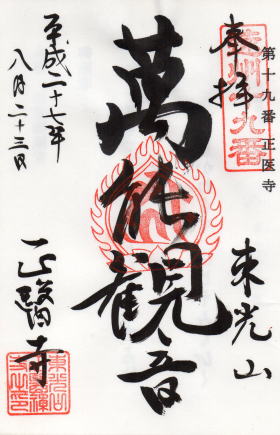 第十九番正医寺
奉拝
東光山
萬能観音
正醫寺
平成二十七年
八月二十三日